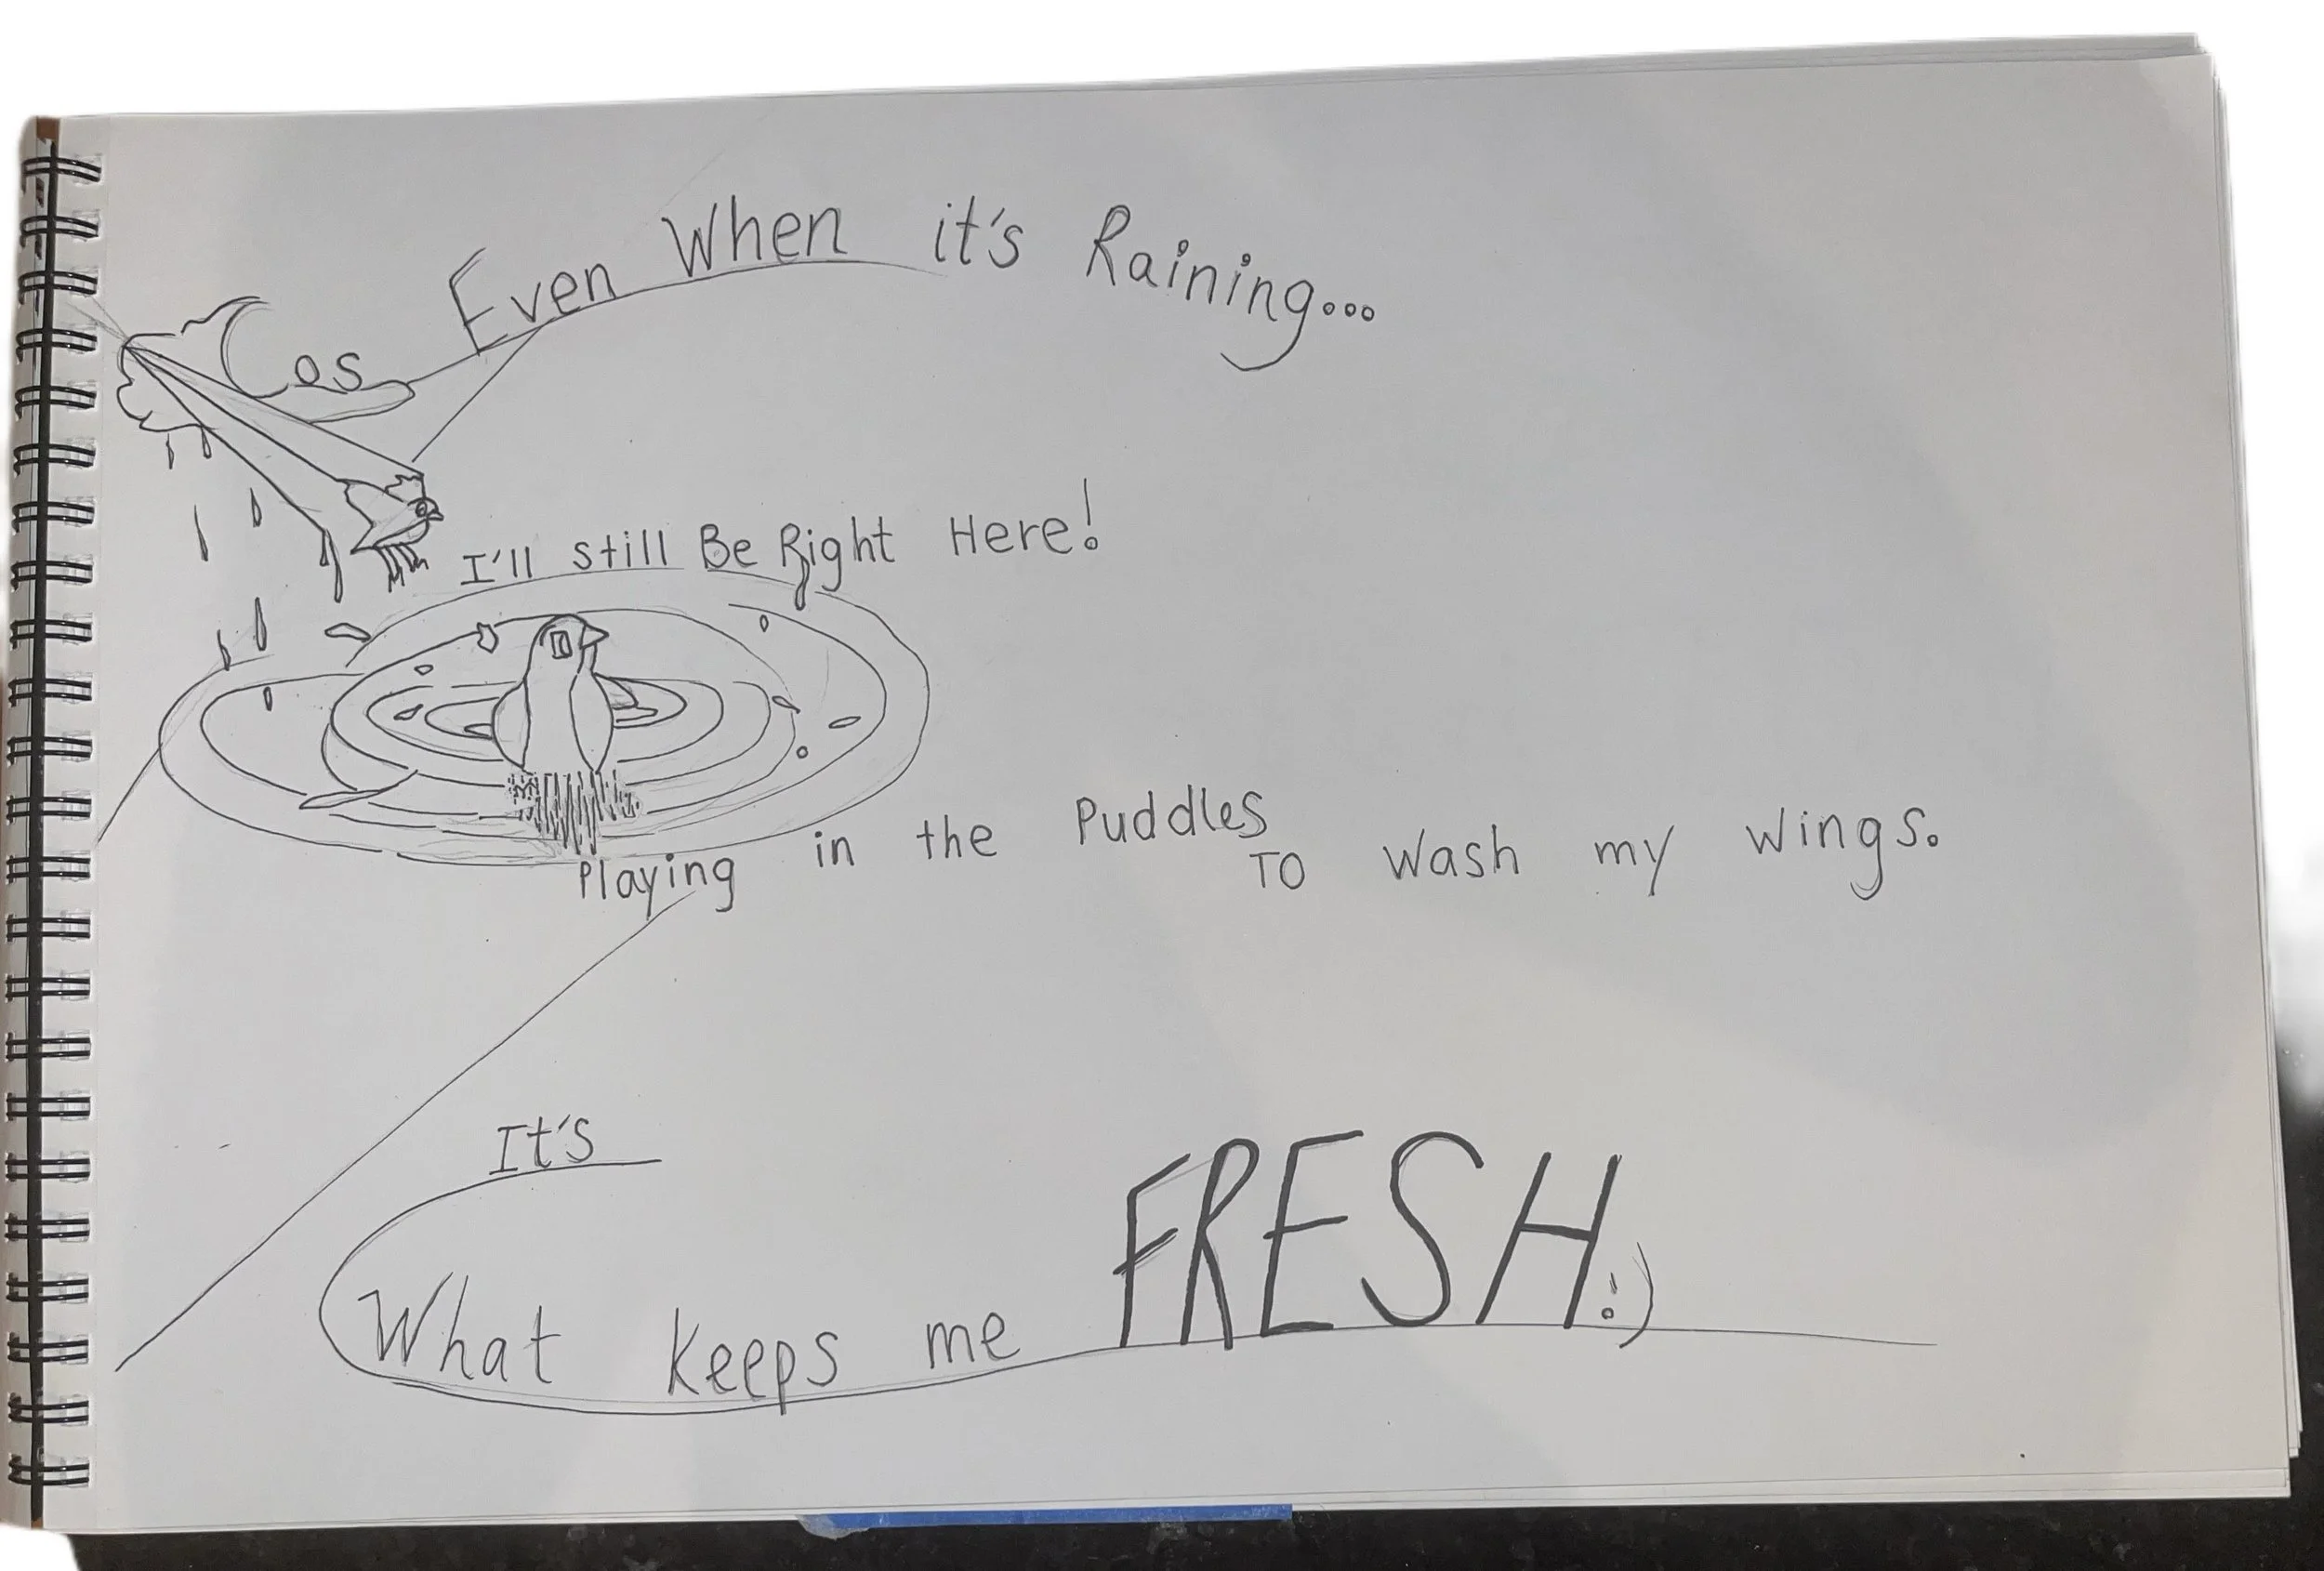 Cos Even When it's Raining...
I'll still Be Right Here!
Playing in the Puddles TO wash my wings.
It's
What keeps me FRESH! :)